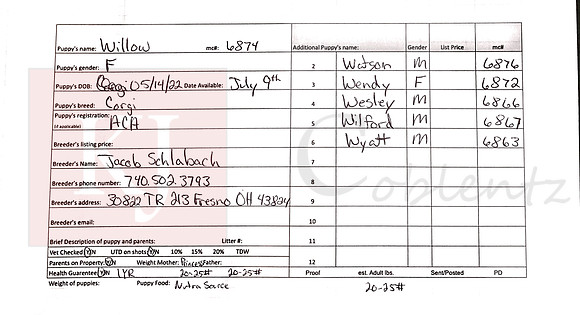 Puppy's name: Willow mc#: 6874
Puppy's gender: F
Puppy's DOB: 05/14/22 Date Available: July 9th
Puppy's breed: Corgi
Puppy's registration: (if applicable) ACA
Breeder's listing price:
Breeder's Name: Jacob Schlabach
Breeder's phone number: 740.502.3793
Breeder's address: 30822 TR 213 Fresno OH 43824
Breeder's email:
Brief Description of puppy and parents: Litter #:
Vet Checked Y/N UTD on shots Y/N 10% 15% 20% TDW
Parents on Property: Y/N Weight Mother: Princess Father:
Health Guarantee Y/N 1YR 20-25# 20-25#
Weight of puppies: Puppy Food: Nutra Source
Additional Puppy's name: Gender List Price mc#
2 Watson M 6876
3 Wendy F 6872
4 Wesley M 6866
5 Wilford M 6867
6 Wyatt M 6863
7
8
9
10
11
12
Proof est. Adult lbs. Sent/Posted PD
20-25#
KJ Coblentz